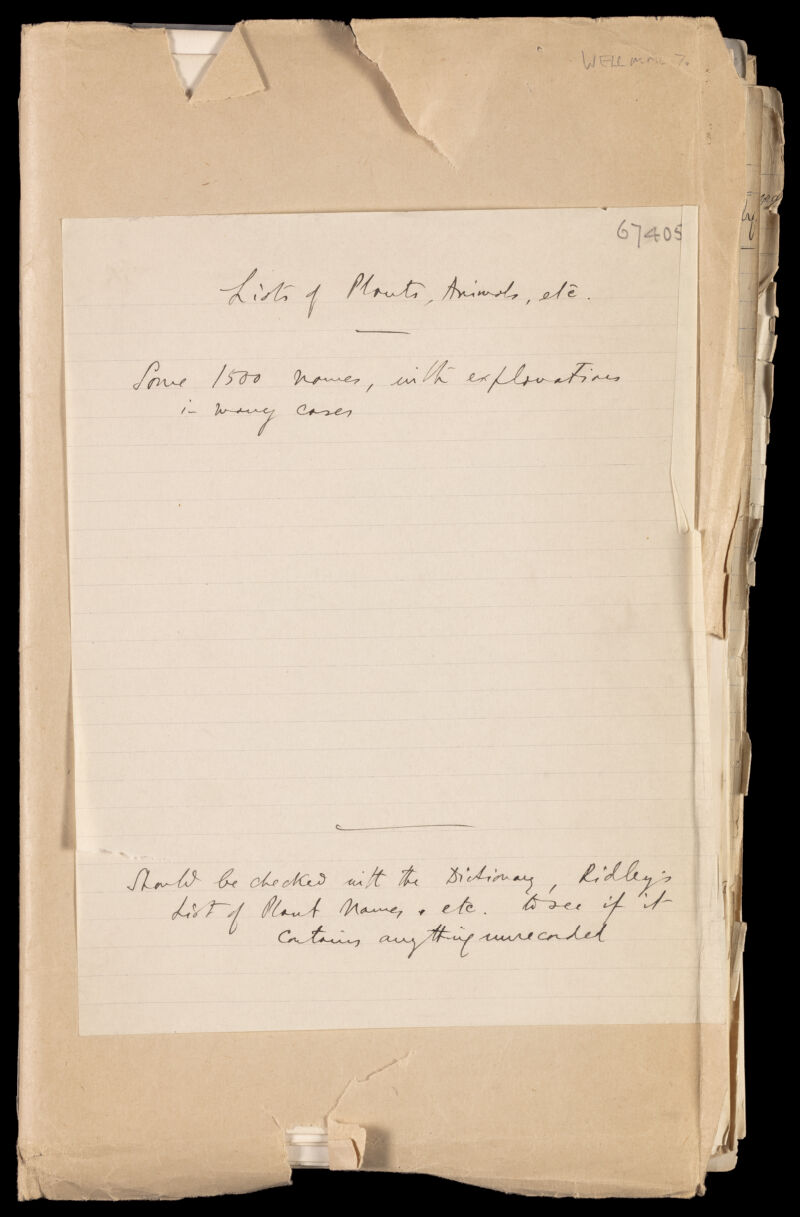 67405
Lists of Plants, Animals, etc.
Some 1500 names, with explanations
in many cases
Should be checked with the Dictionary, Ridley's
List of Plant Names & etc. to see if it
contains anything unrecorded